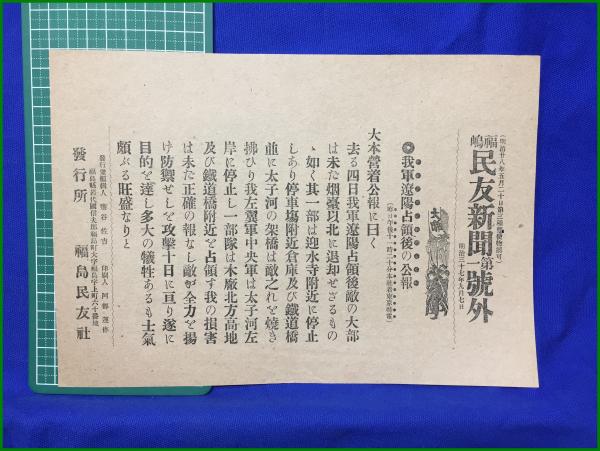 (明治廿八年五月二十日第三種郵便物認可)
福嶋民友新聞第號外
明治三十七年九月七日
大勝利
◎我軍遼陽占領後の公報
大本營着公報に曰く
去る四日我軍遼陽占領後敵の大部
は未だ烟臺以北に退却せざるもの
ゝ如く其一部は迎水寺附近に停止
しあり停車塲附近倉庫及び鐵道橋
並に太子河の架橋は敵之れを燒き
拂ひ我左翼軍中央軍は太子河左
岸に停止し一部隊は木廠北方高地
及び鐵道橋附近を占領す我の損害
は未だ正確の報なし敵が全力を揚
け防禦せしを攻擊十日に亘り遂に
目的を達し多大の犠牲あるも士氣
頗ぶる旺盛なりと
福島縣信夫郡福島町大字福島字上町六十番地
發行所 福島民友社